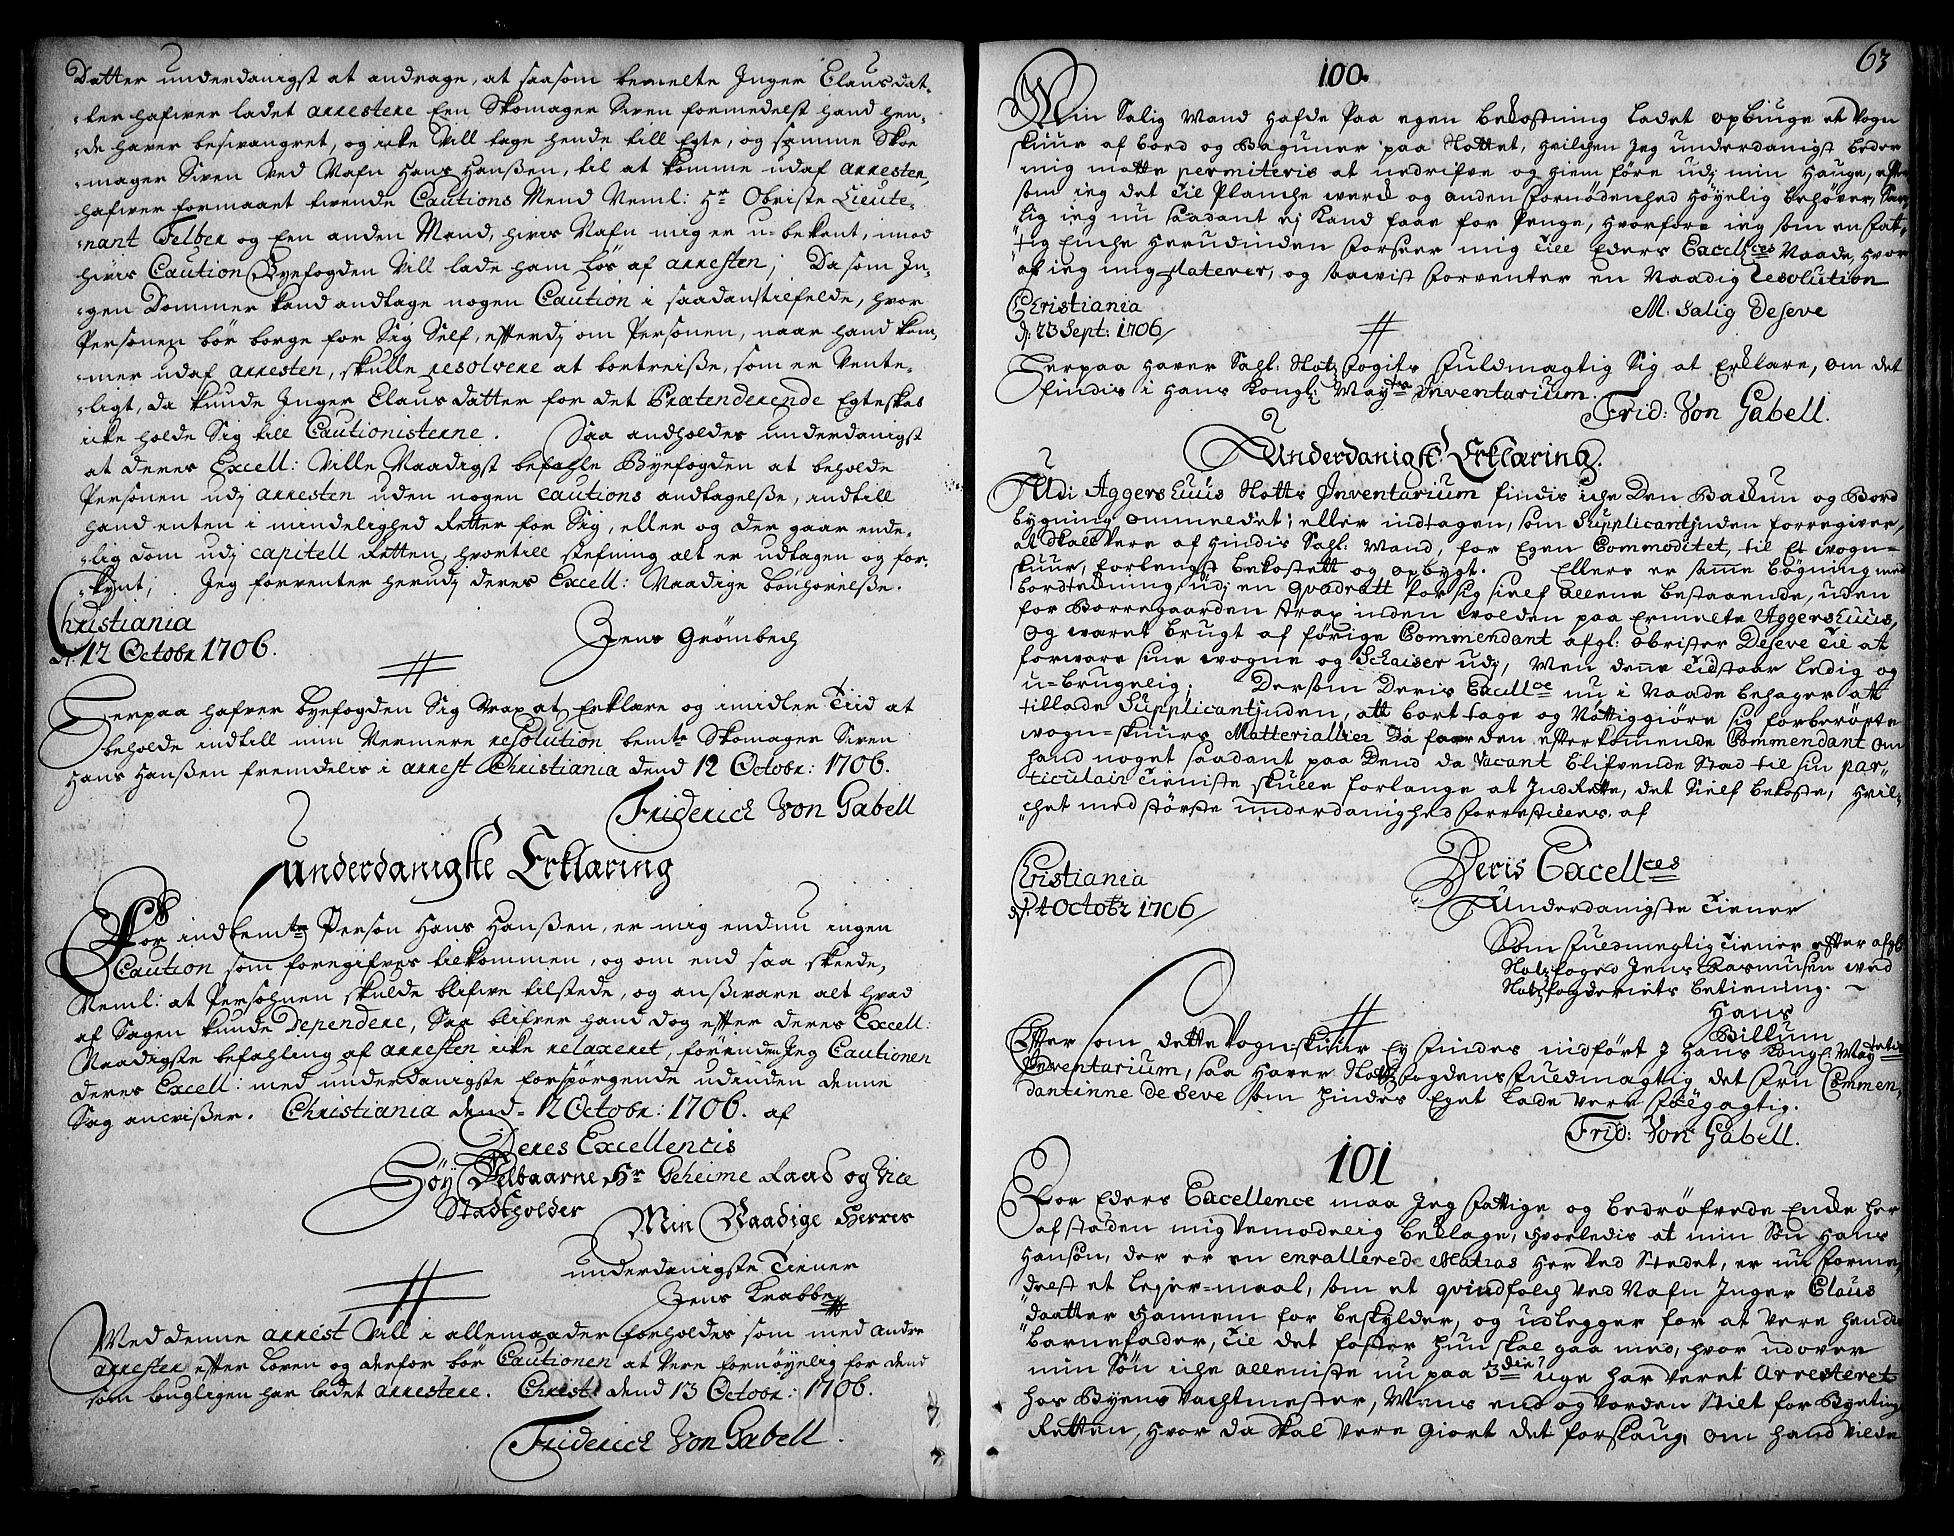 Datter underdanigst at andrage, at saasom bemelte Inger Clausdat-
:ter hafwer ladet arrestere Een Skomager Sven formedelst hand hen-
:de haver besvangret, og icke Vill tage hende till Egte, og samme Skoe
:mager Sven Ved Nafn Hans Hanßen, til at komme udaf arresten,
hafwer formaaet tvende Cautions Mend Neml: Hr Obriste Lieute-
:nant Felber og Een anden Mand, hvis Nafn mig er u-bekant, imod
hvis Caution Byefogden Vill lade ham løs af arresten; Da som In-
:gen Dommer kand andtage nogen Caution i saadanstilfelde, hvor
Personen bør borge for Sig Self, efterdj om Personen, naar hand kom-
:mer udaf arresten, skulle resolvere at bortreiße, som er Vente-
:ligt, da kunde Inger Clausdatter for det Prætenderende Egteskab
icke holde Sig till Cautionisterne. Saa andholdes underdanigst
at deres Excell: Ville Naadigst befahle Byefogden at beholde
Personen udj arresten uden nogen cautions andtagelße, indtill
hand enten i mindelighed Retter for Sig, eller og der gaar ende-
:lig dom udj capitell Retten, hvortill stefning alt er udtagen og for-
:kynt; Jeg forventer herudj deres Excell: Naadige bønhørelße.
Christiania
d. 12 Octobr 1706.
Jens Grømbech
Herpaa hafver byefogden Sig Strax at Erklære og imidler Tiid at
beholde indtill min Nermere resolution bemte Skomager Sven
Hans Hanßen fremdelis i arrest Christiania dend 12 Octobr: 1706.
Friderich Von Gabell
Underdanigste Erklæring
For indbemte Person Hans Hanßen, er mig endnu ingen
Caution som foregifves tilkommen, og om end saa skeede,
Neml: at Persohnen skulde blifve tilstede, og anßvare alt hvad
af Sagen kunde Dependere, Saa blifver hand dog efter deres Excell:
Naadigste befahling af arresten icke relaxeret, førend Jeg Cautionen
deres Excell: med underdanigste forspørgende udenden denne
Sag anvißer. Christiania dend 12 Octobr: 1706. af
Deres Excellencis
Høy Velbaarne Hr Geheime Raad og Vice
Stadtholder
Min Naadige Herres
underdanigste Tiener
Jens Krabbe
Med denne arrest Vill i allemaader forholdes som med andre
arrester efter Loven og derfor bør Cautionen at Vere fornøyelig for dend
som lougligen har ladet arrestere. Christ: dend 13 Octobr: 1706.
Friderich Von Gabell.
63
100.
Min Salig Mand hafde paa egen bekostning ladet opbiuge et Vogn
skuur af bord og Baguner paa Slottet, hvilchen Jeg underdanigst beder
mig motte permiteris at nedrifve og hiem føre udj min Hauge, efter
som ieg det til Planche werk og anden fornødenhed høyelig behøver, Sær-
lig ieg nu saadant ej kand faae for Penge, hvorfore ieg som en fat-
tig Enche herudinden forseer mig till Eders Excellces Naade, hvor
af ieg mig flaterer, og saavist forventer en Naadig resolution
Christiania
d. 23 Sept: 1706
M. Salig DeSeve
Herpaa haver Sahl: Slotz fogits fuldmagtig Sig at Erklære, om det
findis i hans Kongl: Mayts Inventarium.
Frid: Von Gabell.
Underdanigst Erklæring.
Udi Aggershuus Slotts Inventarium findis iche Den Bachun og Bord
bygning ommeldet, eller indtagen, som Supplicantjnden forregiver,
at skal Vere af hindis Sahl: Mand, for Egen Commoditet, til Et wogn-
skuur, forlengst bekostett og opbygt. Ellers er samme bøgning med
bordtechning, udj en quadratt for sig sielf allene bestaaende, uden
for Borregaarden strax inden wolden paa Ermelte Aggershuus,
og waret brugt af førige Commendant afgl: obrister DeSeve til at
forware sine wogne og Schaiser udj, Men denne tid staar ledig og
u-brugelig. Dersom Deris Excellce nu i Naade behager att
tillade Supplicantjnden, att bort tage og Nøttiggiøre sig forberørte
wogn-skuurs Matterialier Da faar den efterkomende Commendant om
hand noget saadant paa Dend da Vacant blifvende Stad til sin par-
ticulair tieniste skulle forlange at IndRette, det Sielf bekoste, hvil-
chet med største underdanighed forrestilles. af
Christiania
d. 4 Octobr 1706
Deris Excellces
Underdanigste tiener
Som fuldmegtig tiener efter afgl:
Slotzfoged Jens Rasmusen wed
Slotzfogderiets betiening.
Hans
Billum
Efter som dette Vognskuur Ey findes indført I Hans Kongl: Maytetz
Inventarium, saa haver Slotzfogdens fuldmagtig det fru Commen-
dantinne de Seve som hindes Eget lade vere følgagtig.
Frid: Von Gabell.
101
For Eders Excellence maa Jeg fattige og bedrøfvede Encke her
af staden mig vemodelig beklage, hvorledis at min Søn Hans
Hansøn, der er en enrallered Matros her ved Stedet, er nu forme-
delst et lejer-maal, som et qvindfolch ved Nafn Inger Claus
daatter Hannem for beskylder, og udlegger for at vere hendis
barnefader, til det foster hun skal gaa med, hvor udover
min Søn iche alleniste nu paa 3die uge har veret Arresteret
hos Byens Vachtmester, Mens end og vorden Stilt for Byeting
Retten, hvor da skal vere giort det forslaug, om hand vilde